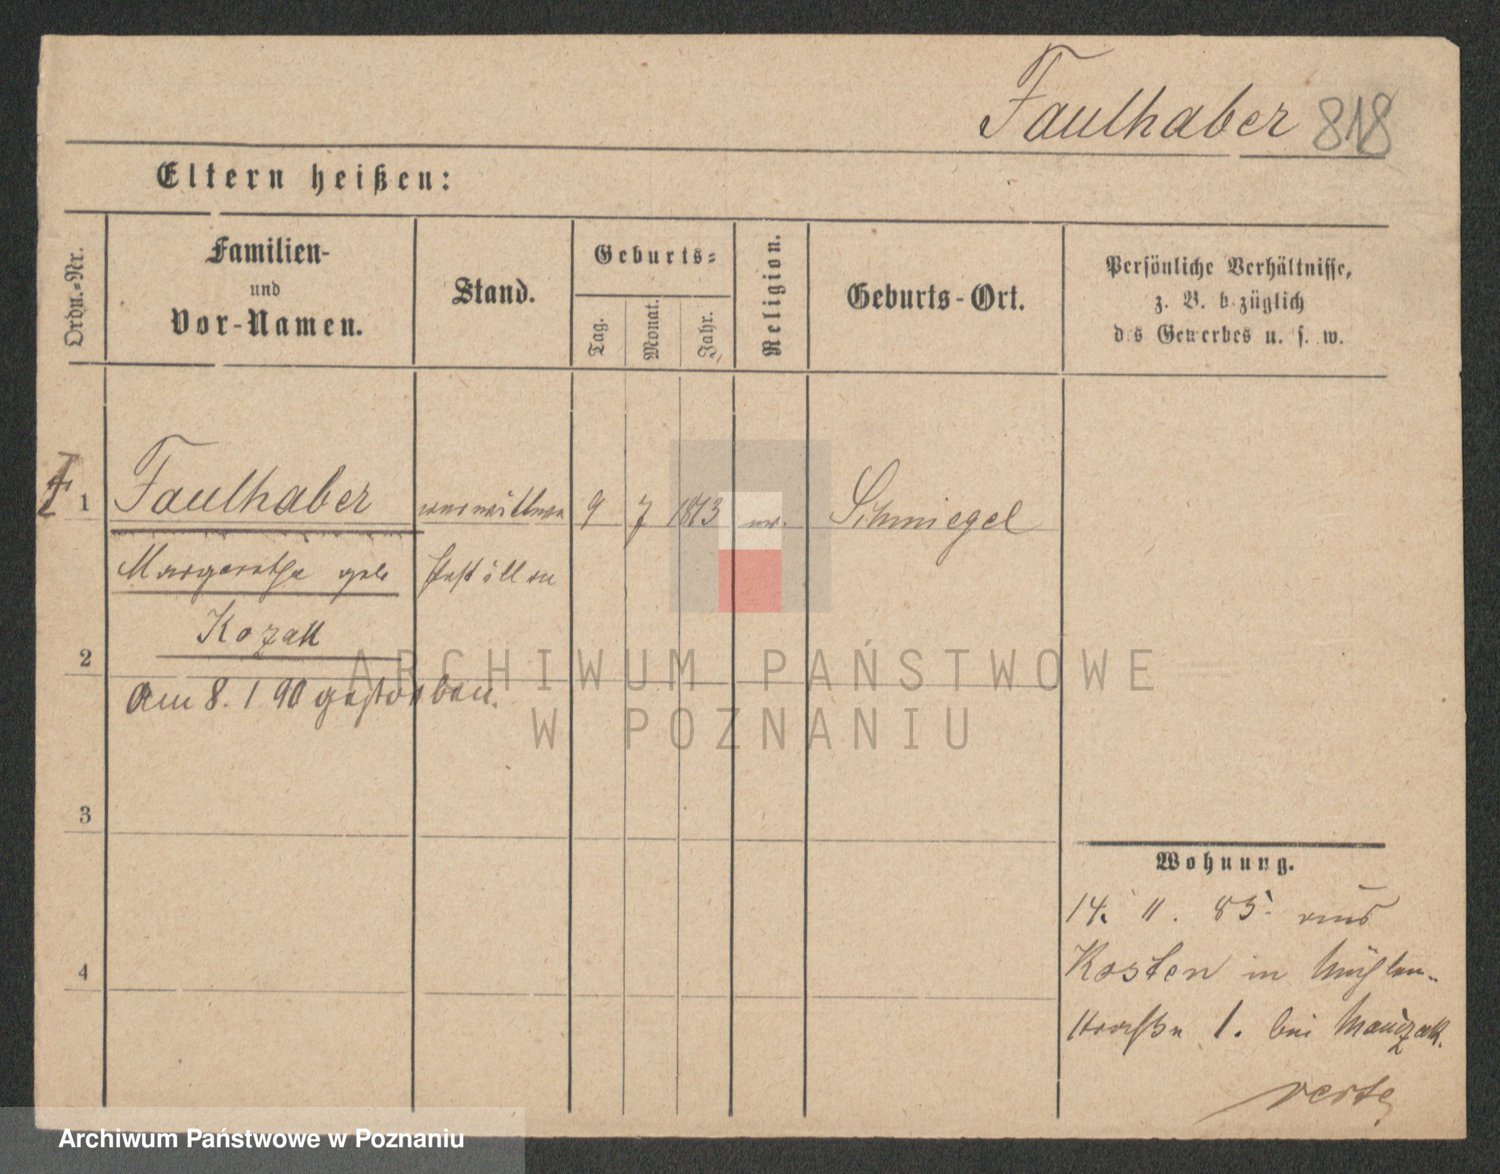 Faulhaber 818
Eltern heißen:
Ordn.-Nr.
Familien-
und
Vor-Namen.
Stand.
Geburts-
Tag.
Monat.
Jahr.
Religion.
Geburts-Ort.
Persönliche Verhältnisse,
z. B. bezüglich
des Gewerbes u. s. w.
1 Faulhaber 9 7 1813 Schmiegel
Margarethe geb
Kozak
2
am 8. 1 90 gestorben.
3
4
Wohnung.
14. 11. 85. aus
Kosten in Mühlen-
straße 1. bei
verte
ARCHIWUM PAŃSTWOWE
W POZNANIU
Archiwum Państwowe w Poznaniu